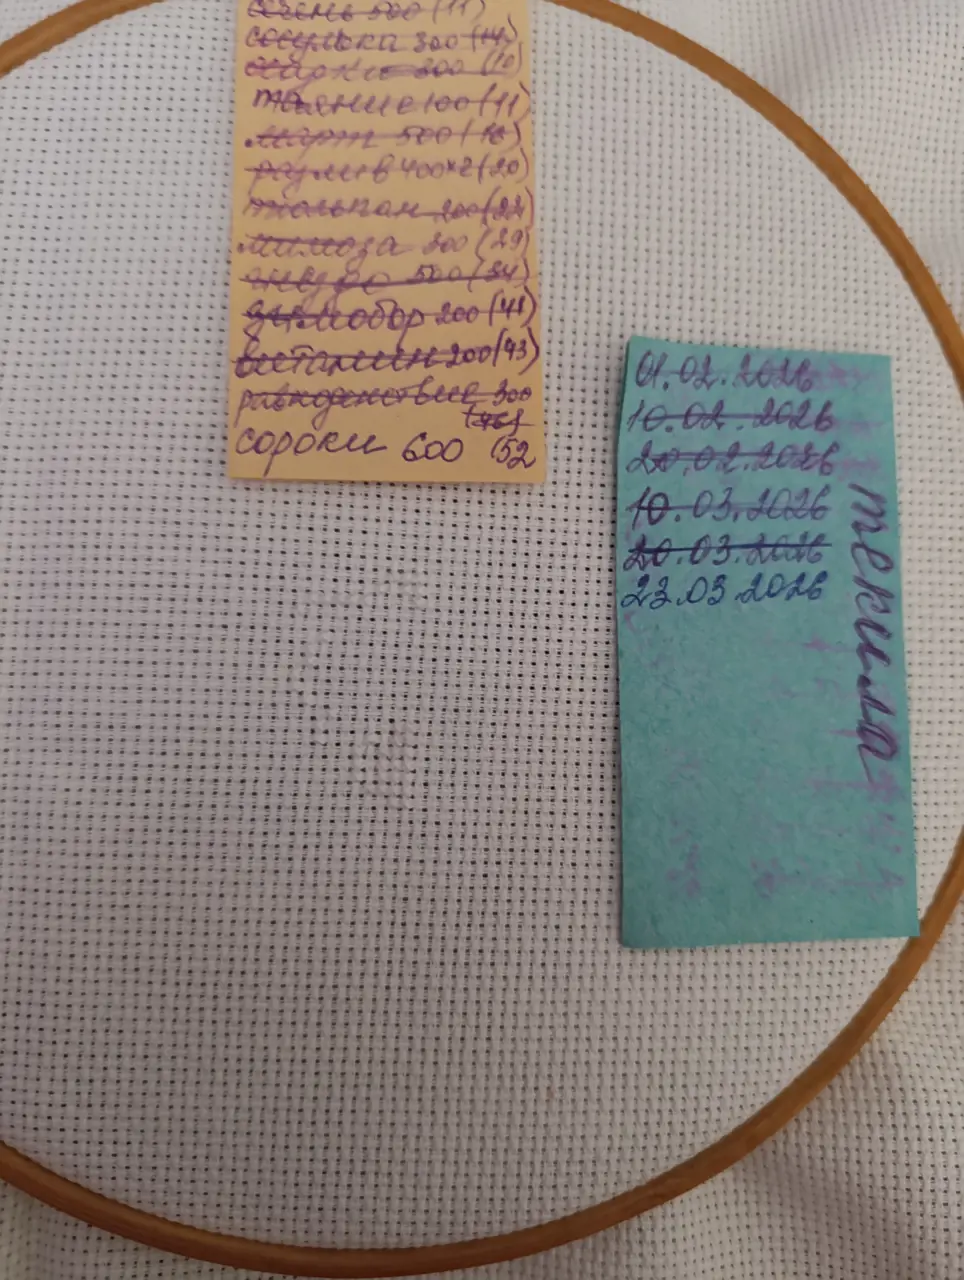 сечень 500 (11)
сосулька 300 (14)
300 (10)
таяние 100 (11)
март 500 (16)
разлив 400×2 (20)
тюльпан 200 (22)
мимоза 300 (29)
500 (34)
зимобор 200 (41)
витамин 200 (43)
равноденствие 300
(46)
сороки 600 (52
01.02.2026
10.02.2026
20.02.2026
10.03.2026
20.03.2026
23.03.2026
текила